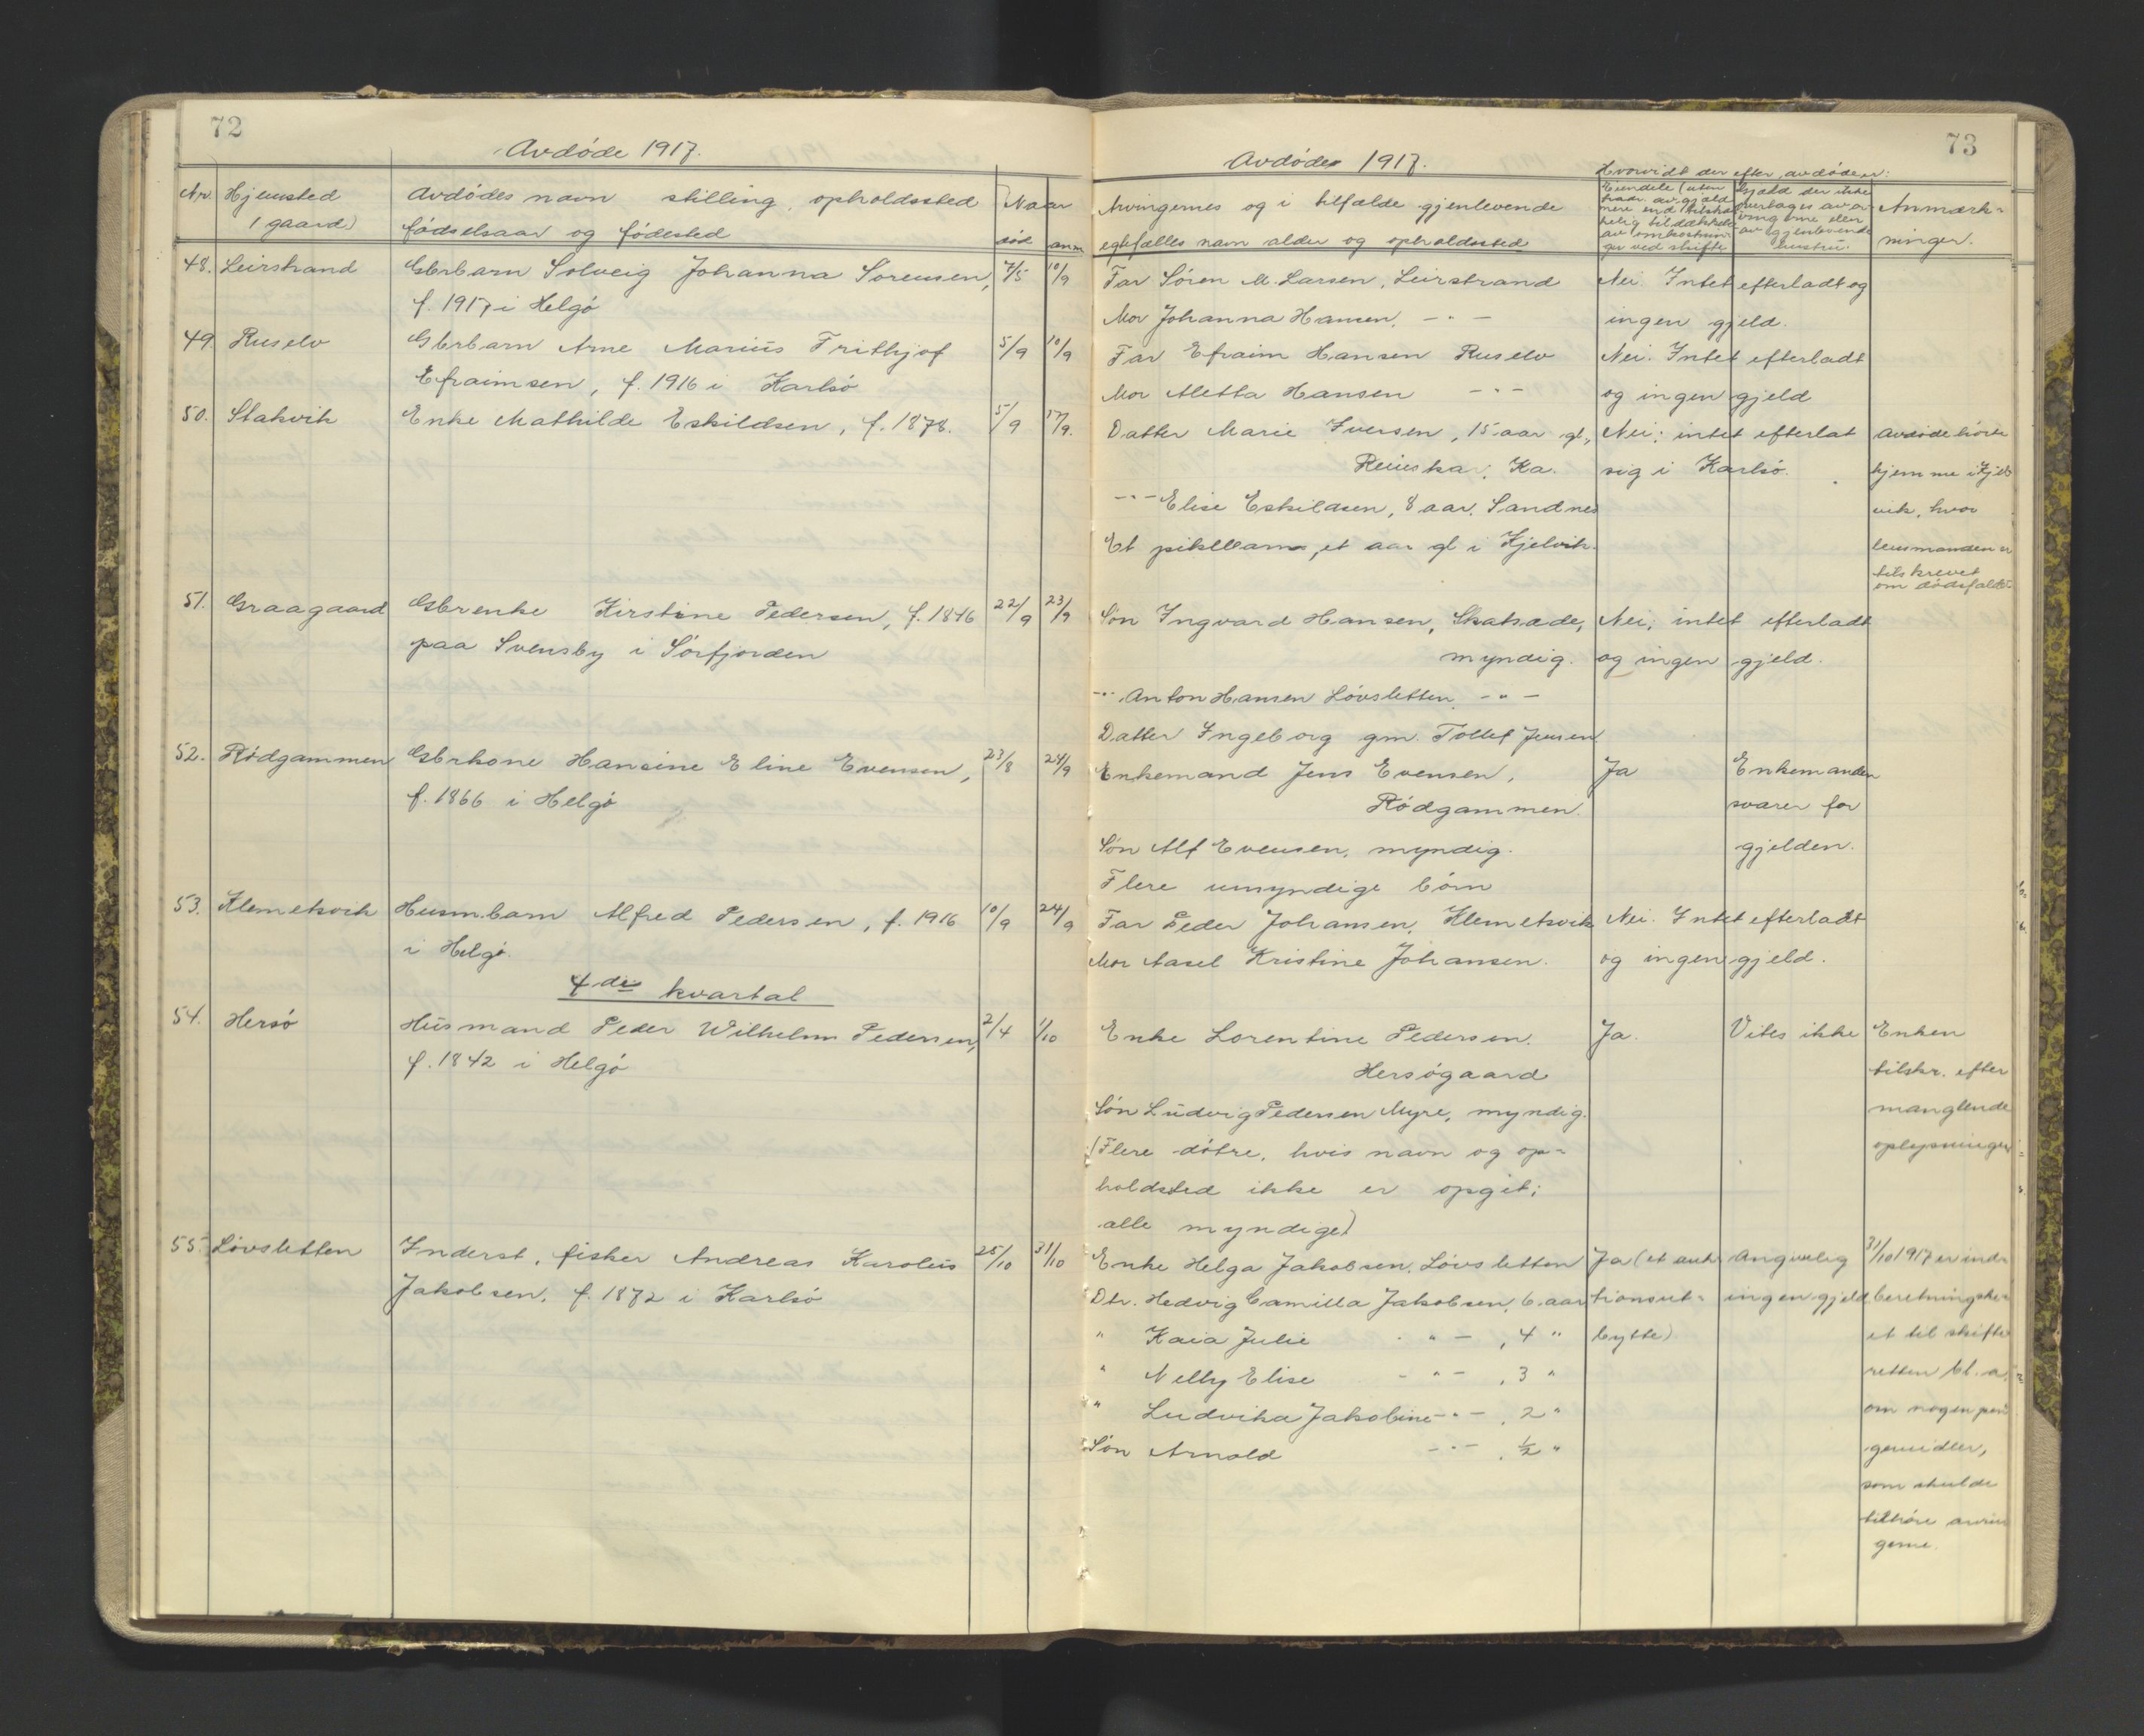 72
Avdøde 1917.
Nr.
Hjemsted
(gaard)
Avdødes navn stilling, opholdssted
fødselsaar og fødested
Naar
død
anm
48. Leirstrand
Gbrbarn Solveig Johanna Sørensen, 7/5 10/9
f. 1917 i Helgø
49. Ruselv
Gbrbarn Arne Marius Frithjof 5/9 10/9
Efraimsen, f. 1916 i Karlsø
50. Stakvik
Enke Mathilde Eskildsen, f. 1878. 5/9 17/9.
51. Graagaard
Gbrenke Kirstine Pedersen, f. 1846 22/9 23/9
paa Svensby i Sørfjorden
52. Rødgammen
Gbrkone Hansine Eline Evensen, 23/8 24/9
f. 1866 i Helgø
53. Klemetsvik
Husm.barn Alfred Pedersen, f. 1916 10/9 24/9
i Helgø.
4de kvartal
54. Hersø
Husmand Peder Wilhelm Pedersen, 2/4 1/10
f. 1842 i Helgø
55. Løvsletten
Inderst, fisker Andreas Karolius 25/10 31/10
Jakobsen, f. 1872 i Karlsø
73
Avdøde 1917.
Hvorvidt der efter avdøde er:
Arvingernes og i tilfælde gjenlevende
egtefælles navn alder og opholdssted
Eiendele (uten
hadr. av gjæld
mere end tilstræk
kelig til dækkelse
av omkostnin-
ger ved skifte
Gjæld der ikke
overtages av ar-
vingerne eller
av gjenlevende
hustru.
Anmærk-
ninger.
Far Søren M. Larsen, Leirstrand Nei. Intet efterladt og
Mor Johanna Hansen, - " - ingen gjeld.
Far Efraim Hansen Ruselv Nei. Intet efterladt
Mor Aletta Hansen - " - og ingen gjeld
Datter Marie Iversen, 15 aar gl., Nei; intet efterlat Avdøde hørte
Reinskar, Ka. sig i Karlsø. hjemme i Kjel-
- " - Elise Eskildsen, 8 aar, Sandnes vik, hvor
Et pikebarn, et aar gl i Kjelvik. lensmanden er
tilskrevet
om dødsfaldet
Søn Ingvard Hansen, Skatsæde, Nei, intet efterladt
myndig. og ingen gjeld.
- " - Anton Hansen Løvsletten, - " -
Datter Ingeborg gm. Tollef Jensen.
Enkemand Jens Evensen, Ja Enkemanden
Rødgammen. svarer for
Søn Alf Evensen, myndig. gjelden.
Flere umyndige børn
Far Peder Johansen, Klemetsvik Nei. Intet efterladt
Mor Aasel Kristine Johansen. og ingen gjeld.
Enke Lorentine Pedersen. Ja. Vites ikke Enken
Hersøgaard tilskr. efter
Søn Ludvig Pedersen Myre, myndig. manglende
(Flere døtre, hvis navn og op- oplysninger
holdsted ikke er opgit;
alle myndige)
Enke Helga Jakobsen, Løvsletten Ja (et auk- Angivelig 31/10 1917 er ind-
Dtr. Hedvig Camilla Jakobsen, 6 aar tionsut- ingen gjeld beretning ske-
" Kaia Julie - " - , 4 " bytte). et til skifte-
" Nelly Elise - " - , 3 " retten bl. a.
" Ludvika Jakobine - " - , 2 " om nogen pen-
Søn Arnold - " - , 1/2 " gemidler,
som skulde
tilhøre arvin-
gerne.